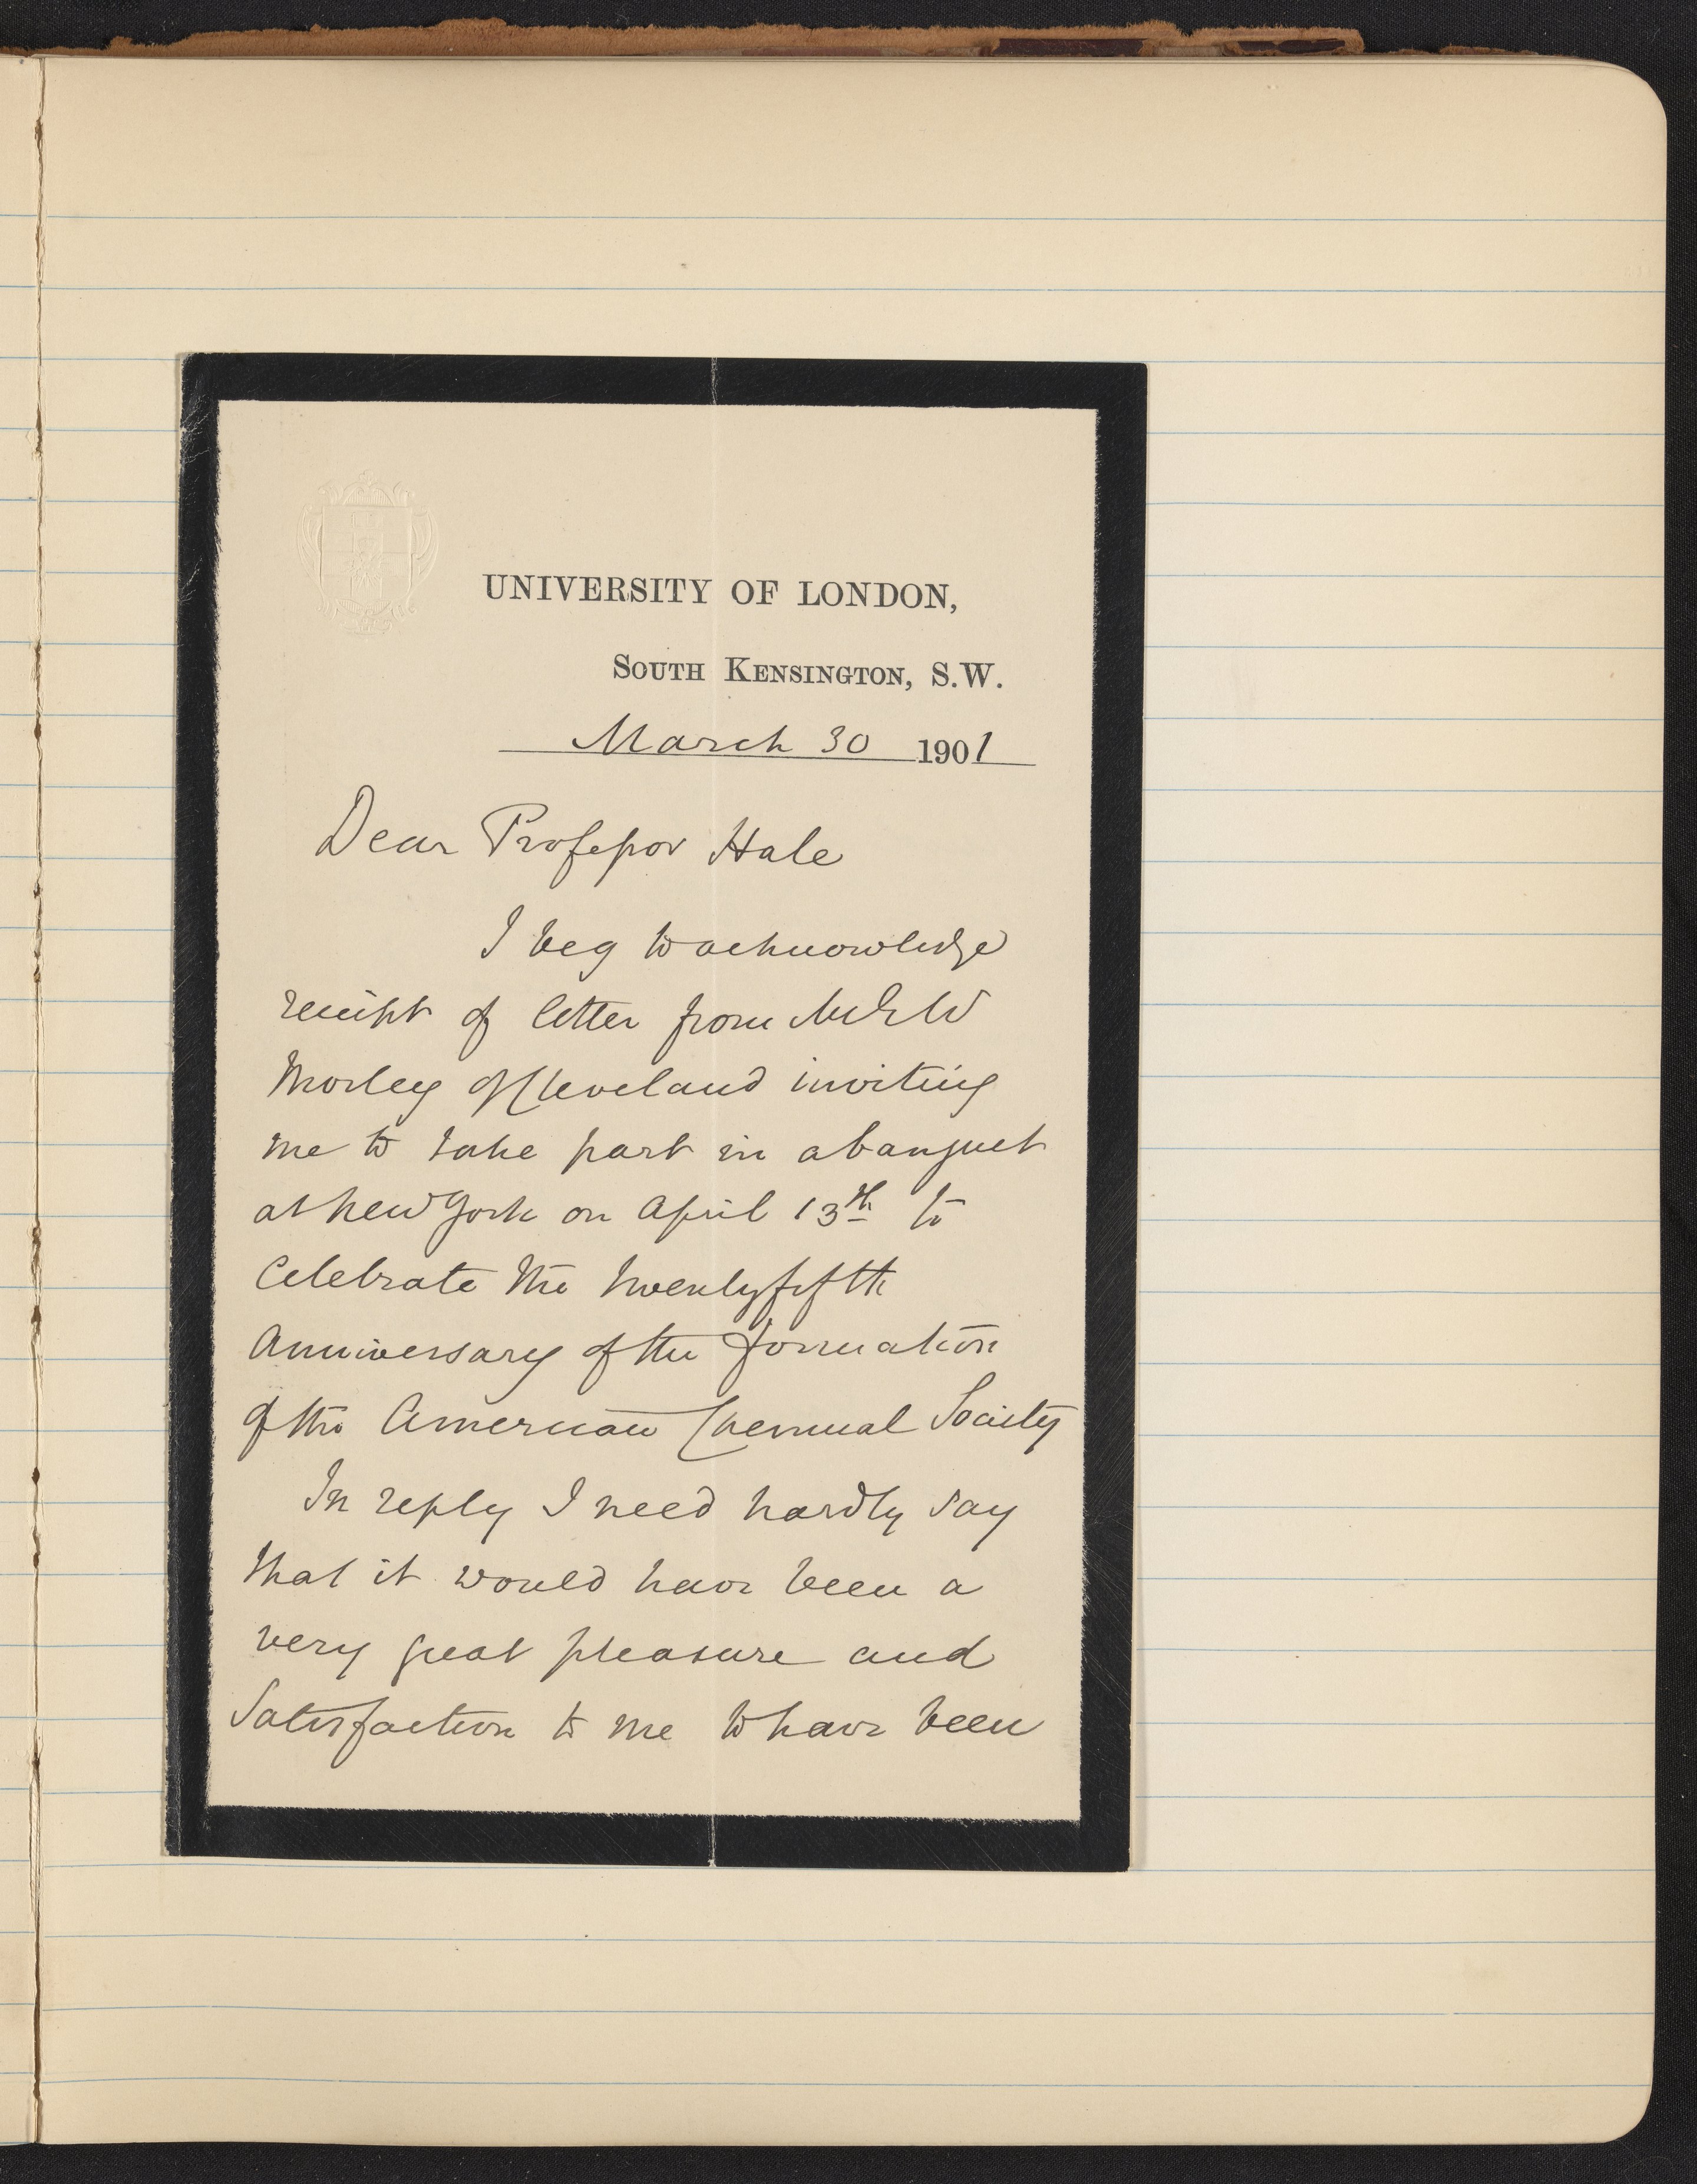 UNIVERSITY OF LONDON,
SOUTH KENSINGTON, S.W.
March 30 1901
Dear Professor Hale
I beg to acknowledge
receipt of letter from Mr E W
Morley of Cleveland inviting
me to take part in a banquet
at New York on April 13th to
Celebrate the twentyfifth
Anniversary of the formation
of the American Chemical Society
In reply I need hardly say
that it would have been a
very great pleasure and
Satisfaction to me to have been